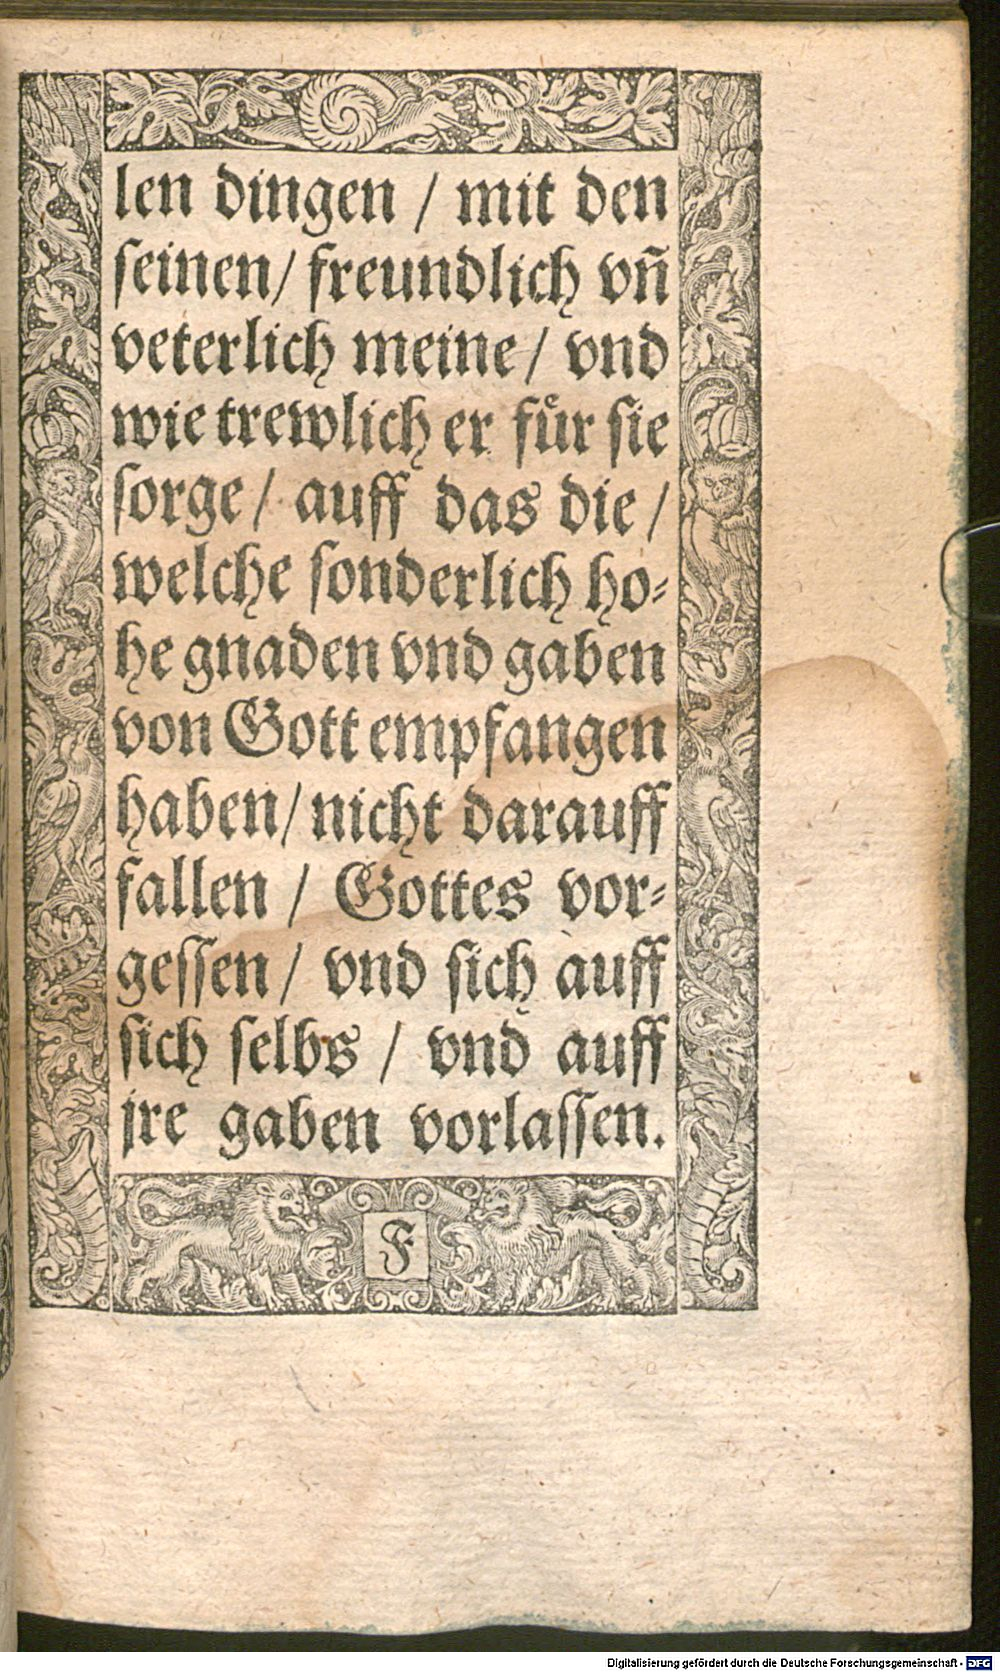 len dingen / mit den
ſeinen / freundlich vñ
veterlich meine / vnd
wie trewlich er fuͤr ſie
ſorge / auff das die /
welche ſonderlich ho⸗
he gnaden vnd gaben
von Gott empfangen
haben / nicht darauff
fallen / Gottes vor⸗
geſſen / vnd ſich auff
ſich ſelbs / vnd auff
jre gaben vorlaſſen.
F
Digitalisierung gefördert durch die Deutsche Forschungsgemeinschaft - DFG